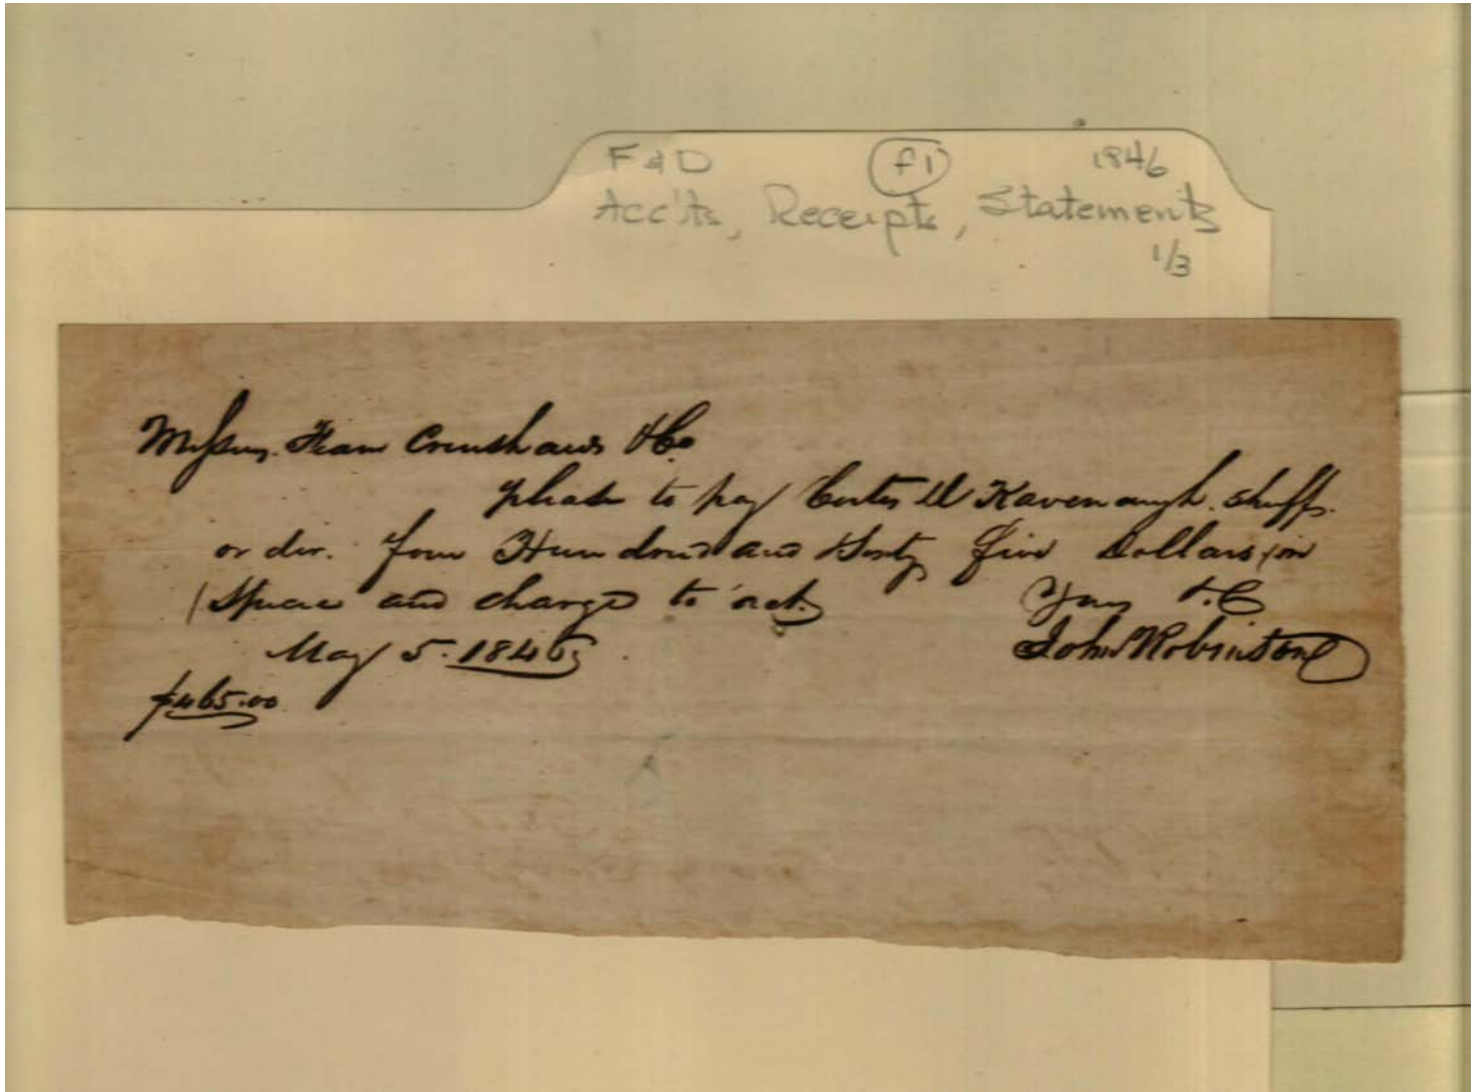 F & D (f1) 1846
Acc'ts, Receipts, Statements
1/3
Messrs. Fearn Crenshaw & Co
please to pay Kavenaugh. Shff.
or der. four Hundred and Sixty five Dollars, in
Specie and charge to act. Yours &.C
May 5. 1846 John Robinson
$465.00